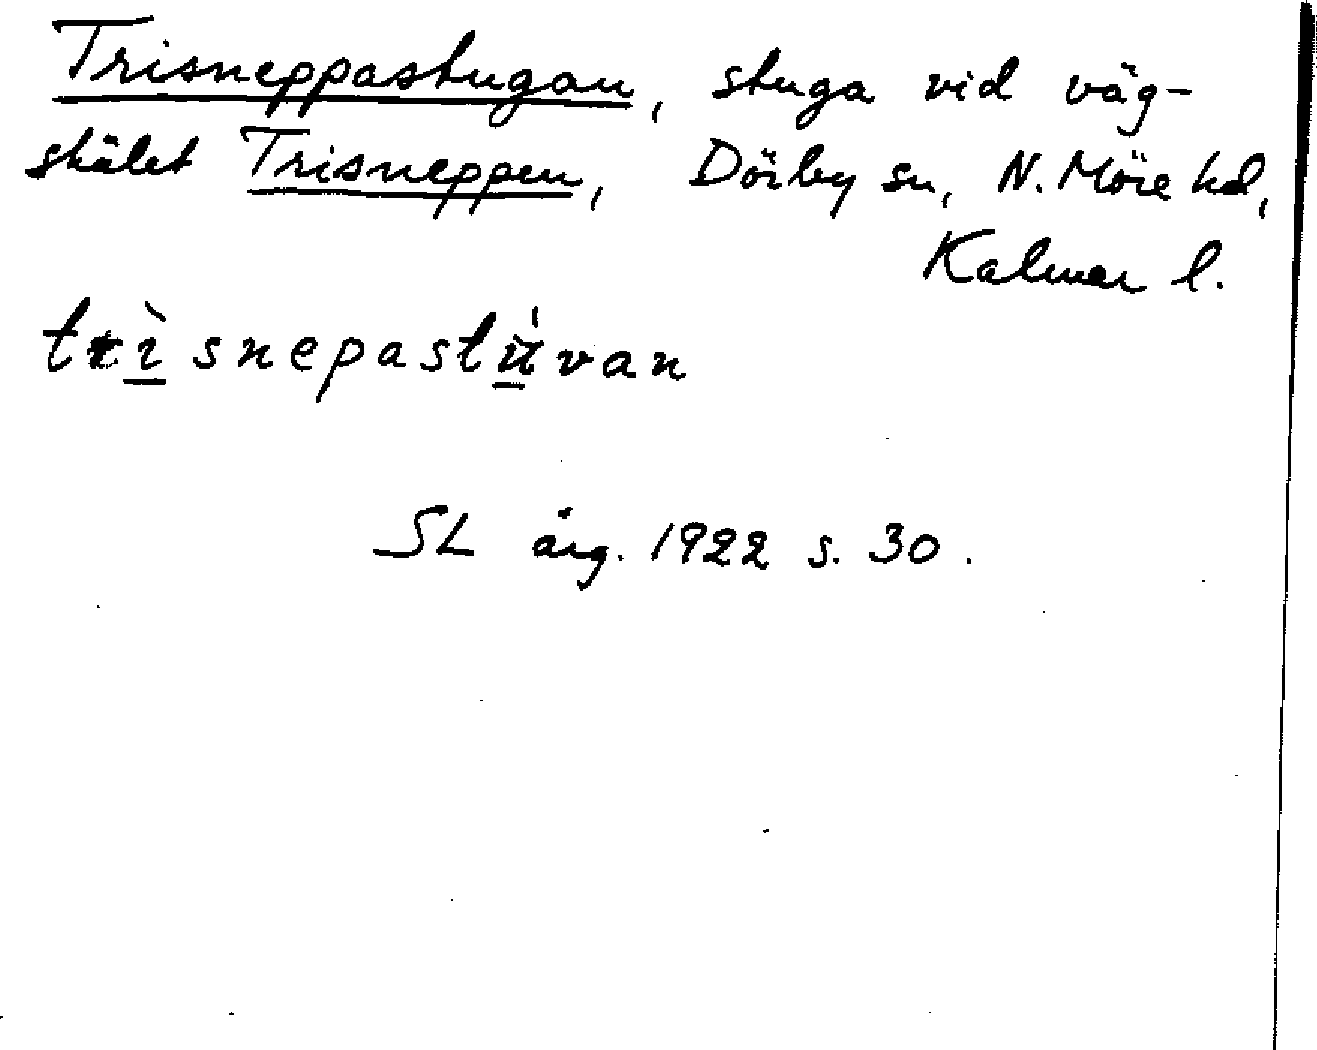 Trisneppastugan, stuga vid väg-
skälet Trisneppen, Dörby sn, N. Möre hd,
Kalmar l.
trı̀snepastu̇̀van
SL årg. 1922 s. 30.